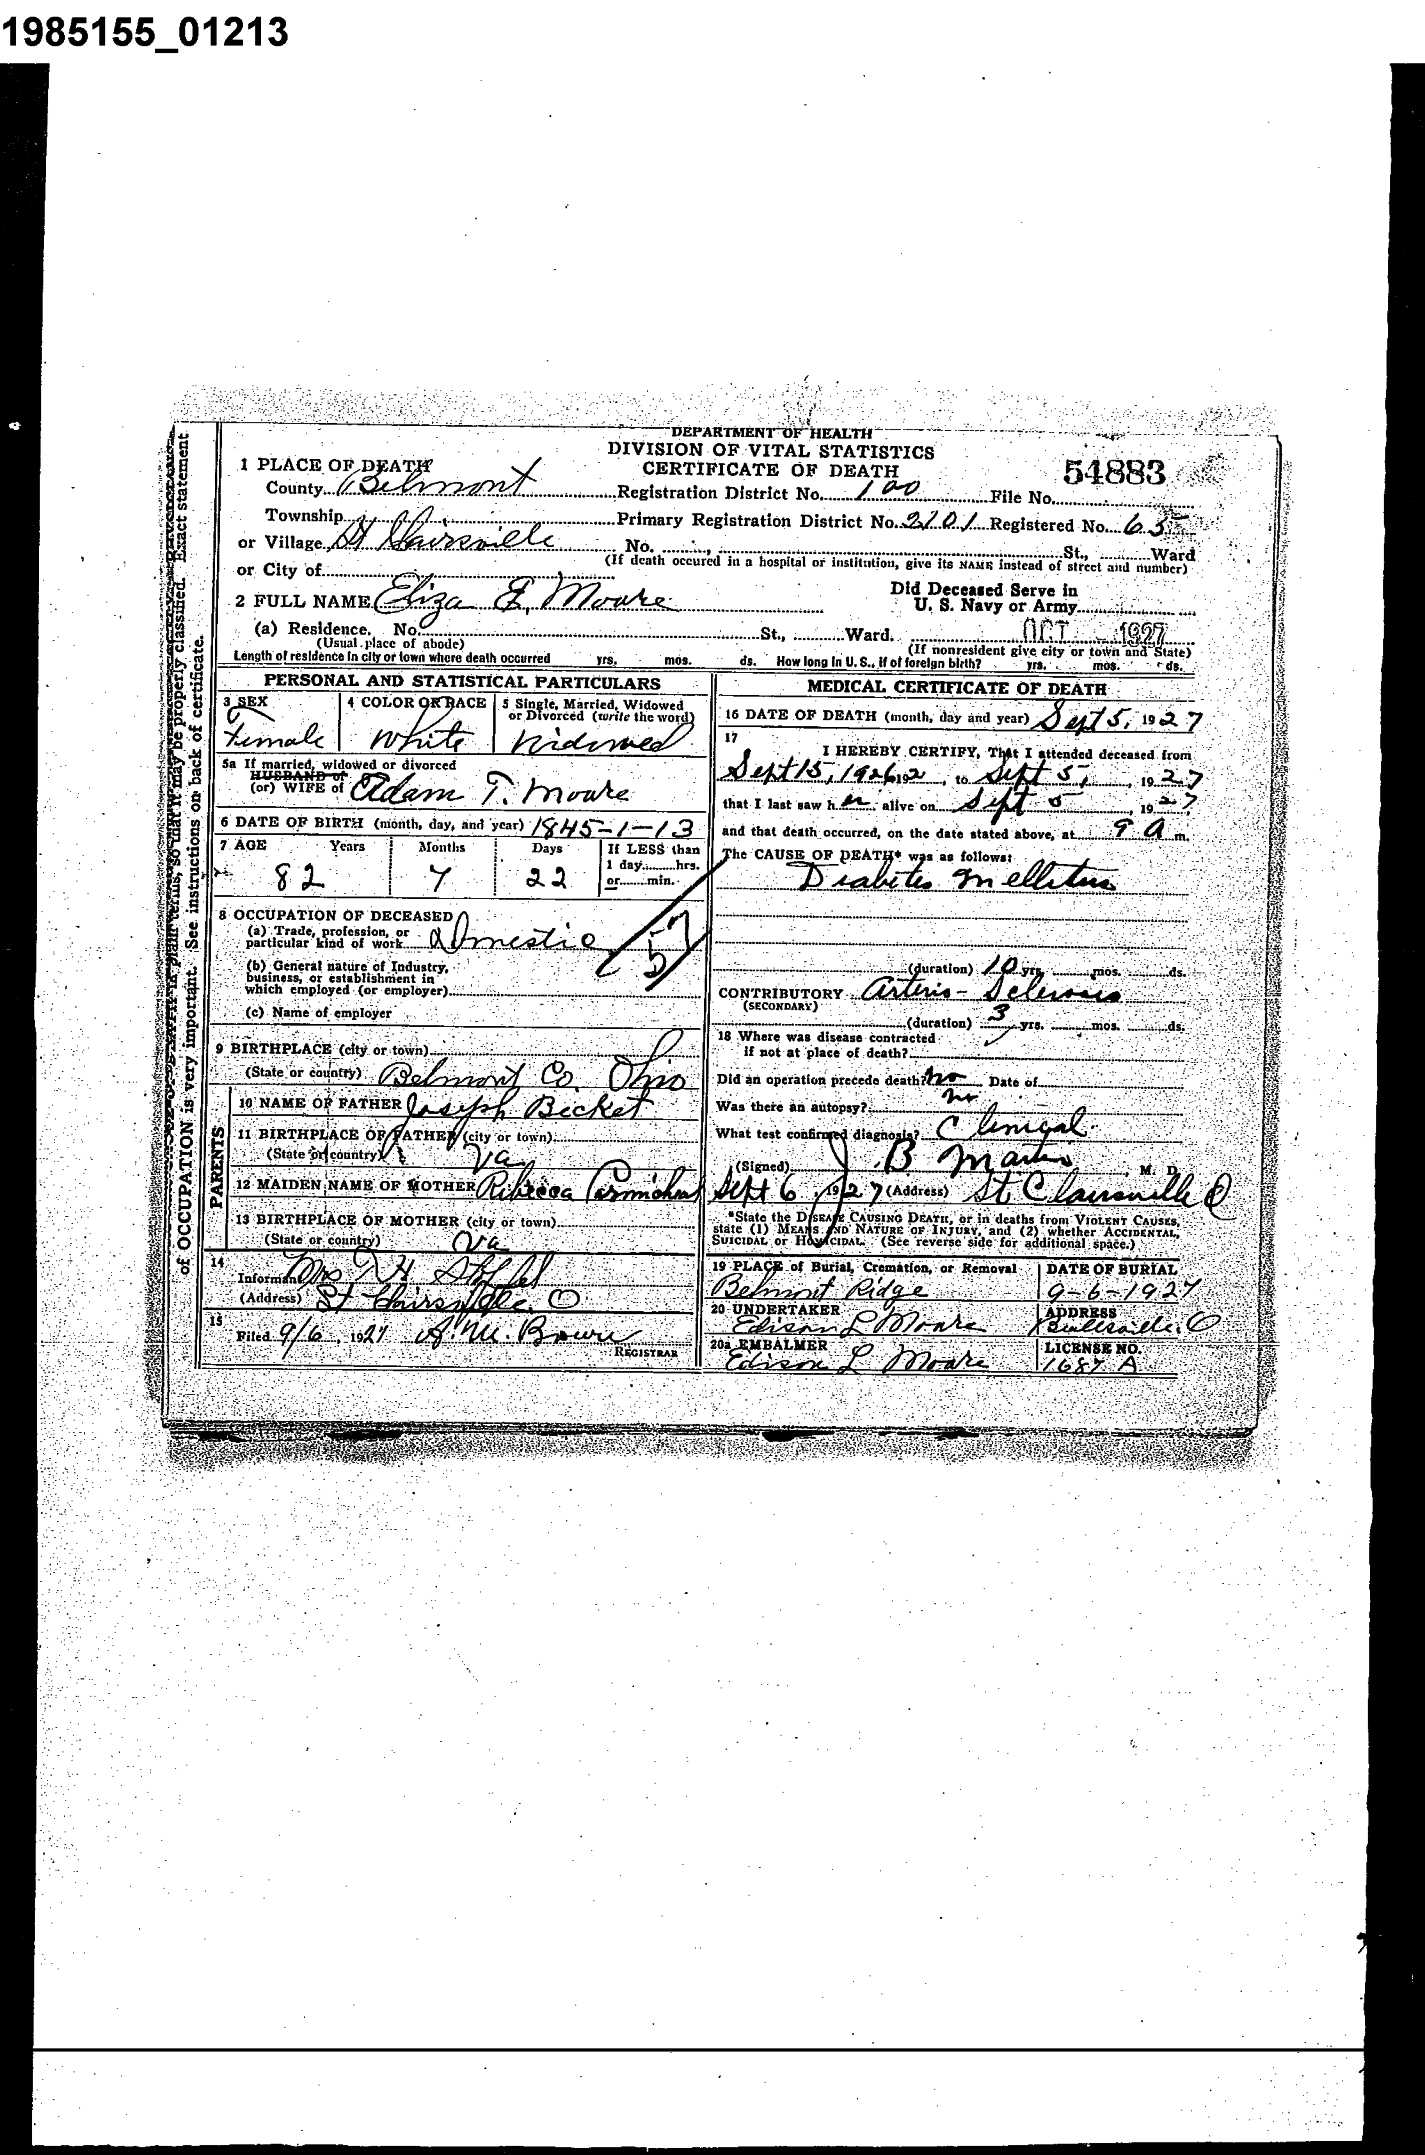 1985155_01213
DEPARTMENT OF HEALTH
DIVISION OF VITAL STATISTICS
CERTIFICATE OF DEATH
54883
1 PLACE OF DEATH
County Belmont Registration District No. 100 File No.
Township Primary Registration District No. 2701 Registered No. 65
or Village St Clairsville No. St., Ward
(If death occured in a hospital or institution, give its NAME instead of street and number)
or City of
2 FULL NAME Eliza E. Moore
Did Deceased Serve in
U. S. Navy or Army
(a) Residence. No. St., Ward. OCT 1927
(Usual place of abode) (If nonresident give city or town and State)
Length of residence in city or town where death occurred yrs. mos. ds. How long in U. S., if of foreign birth? yrs. mos. ds.
PERSONAL AND STATISTICAL PARTICULARS
3 SEX Female
4 COLOR OR RACE White
5 Single, Married, Widowed
or Divorced (write the word)
Widowed
5a If married, widowed or divorced
HUSBAND of
(or) WIFE of Adam T. Moore
6 DATE OF BIRTH (month, day, and year) 1845-1-13
7 AGE Years Months Days If LESS than
1 day hrs.
or min.
82 7 22
8 OCCUPATION OF DECEASED
(a) Trade, profession, or
particular kind of work Domestic
57
(b) General nature of Industry,
business, or establishment in
which employed (or employer)
(c) Name of employer
9 BIRTHPLACE (city or town)
(State or country) Belmont Co. Ohio
PARENTS
10 NAME OF FATHER Joseph Becket
11 BIRTHPLACE OF FATHER (city or town)
(State or country) Va
12 MAIDEN NAME OF MOTHER Rebecca Carmichael
13 BIRTHPLACE OF MOTHER (city or town)
(State or country) Va
14
Informant Mrs
(Address) St Clairsville O
15
Filed 9/6, 1927 A. M. Bowie
REGISTRAR
MEDICAL CERTIFICATE OF DEATH
16 DATE OF DEATH (month, day and year) Sept 5, 1927
17
I HEREBY CERTIFY, That I attended deceased from
Sept 15, 1926 192, to Sept 5, 1927
that I last saw her alive on Sept 5 1927
and that death occurred, on the date stated above, at 9 A m.
The CAUSE OF DEATH* was as follows:
Diabetes Mellitus
(duration) 10 yrs. mos. ds.
CONTRIBUTORY Arterio-Sclerosis
(SECONDARY)
(duration) 3 yrs. mos. ds.
18 Where was disease contracted
if not at place of death?
Did an operation precede death? no Date of
Was there an autopsy? no
What test confirmed diagnosis? Clinical
(Signed) J. B Martin, M. D.
Sept 6, 1927 (Address) St Clairsville O
*State the DISEASE CAUSING DEATH, or in deaths from VIOLENT CAUSES,
state (1) MEANS AND NATURE OF INJURY, and (2) whether ACCIDENTAL,
SUICIDAL or HOMICIDAL. (See reverse side for additional space.)
19 PLACE of Burial, Cremation, or Removal
Belmont Ridge
DATE OF BURIAL
9-6-1927
20 UNDERTAKER
Edison L Moore
ADDRESS
20a EMBALMER
Edison L Moore
LICENSE NO.
1687 A
properly classified. Exact statement
of OCCUPATION is very important. See instructions on back of certificate.